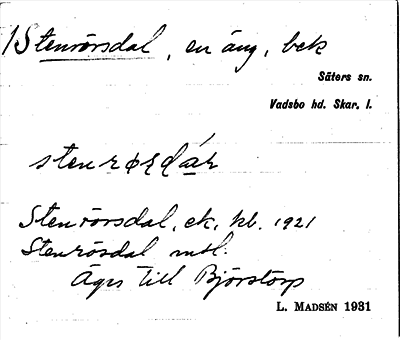 1 Stenrörsdal, en äng, bek
Säters sn.
Vadsbo hd. Skar. l.
Stenrörsdal, ek, kb. 1921
Stenrösdal mtl.
Ägrs till Björstorp
L. MADSÉN 1931